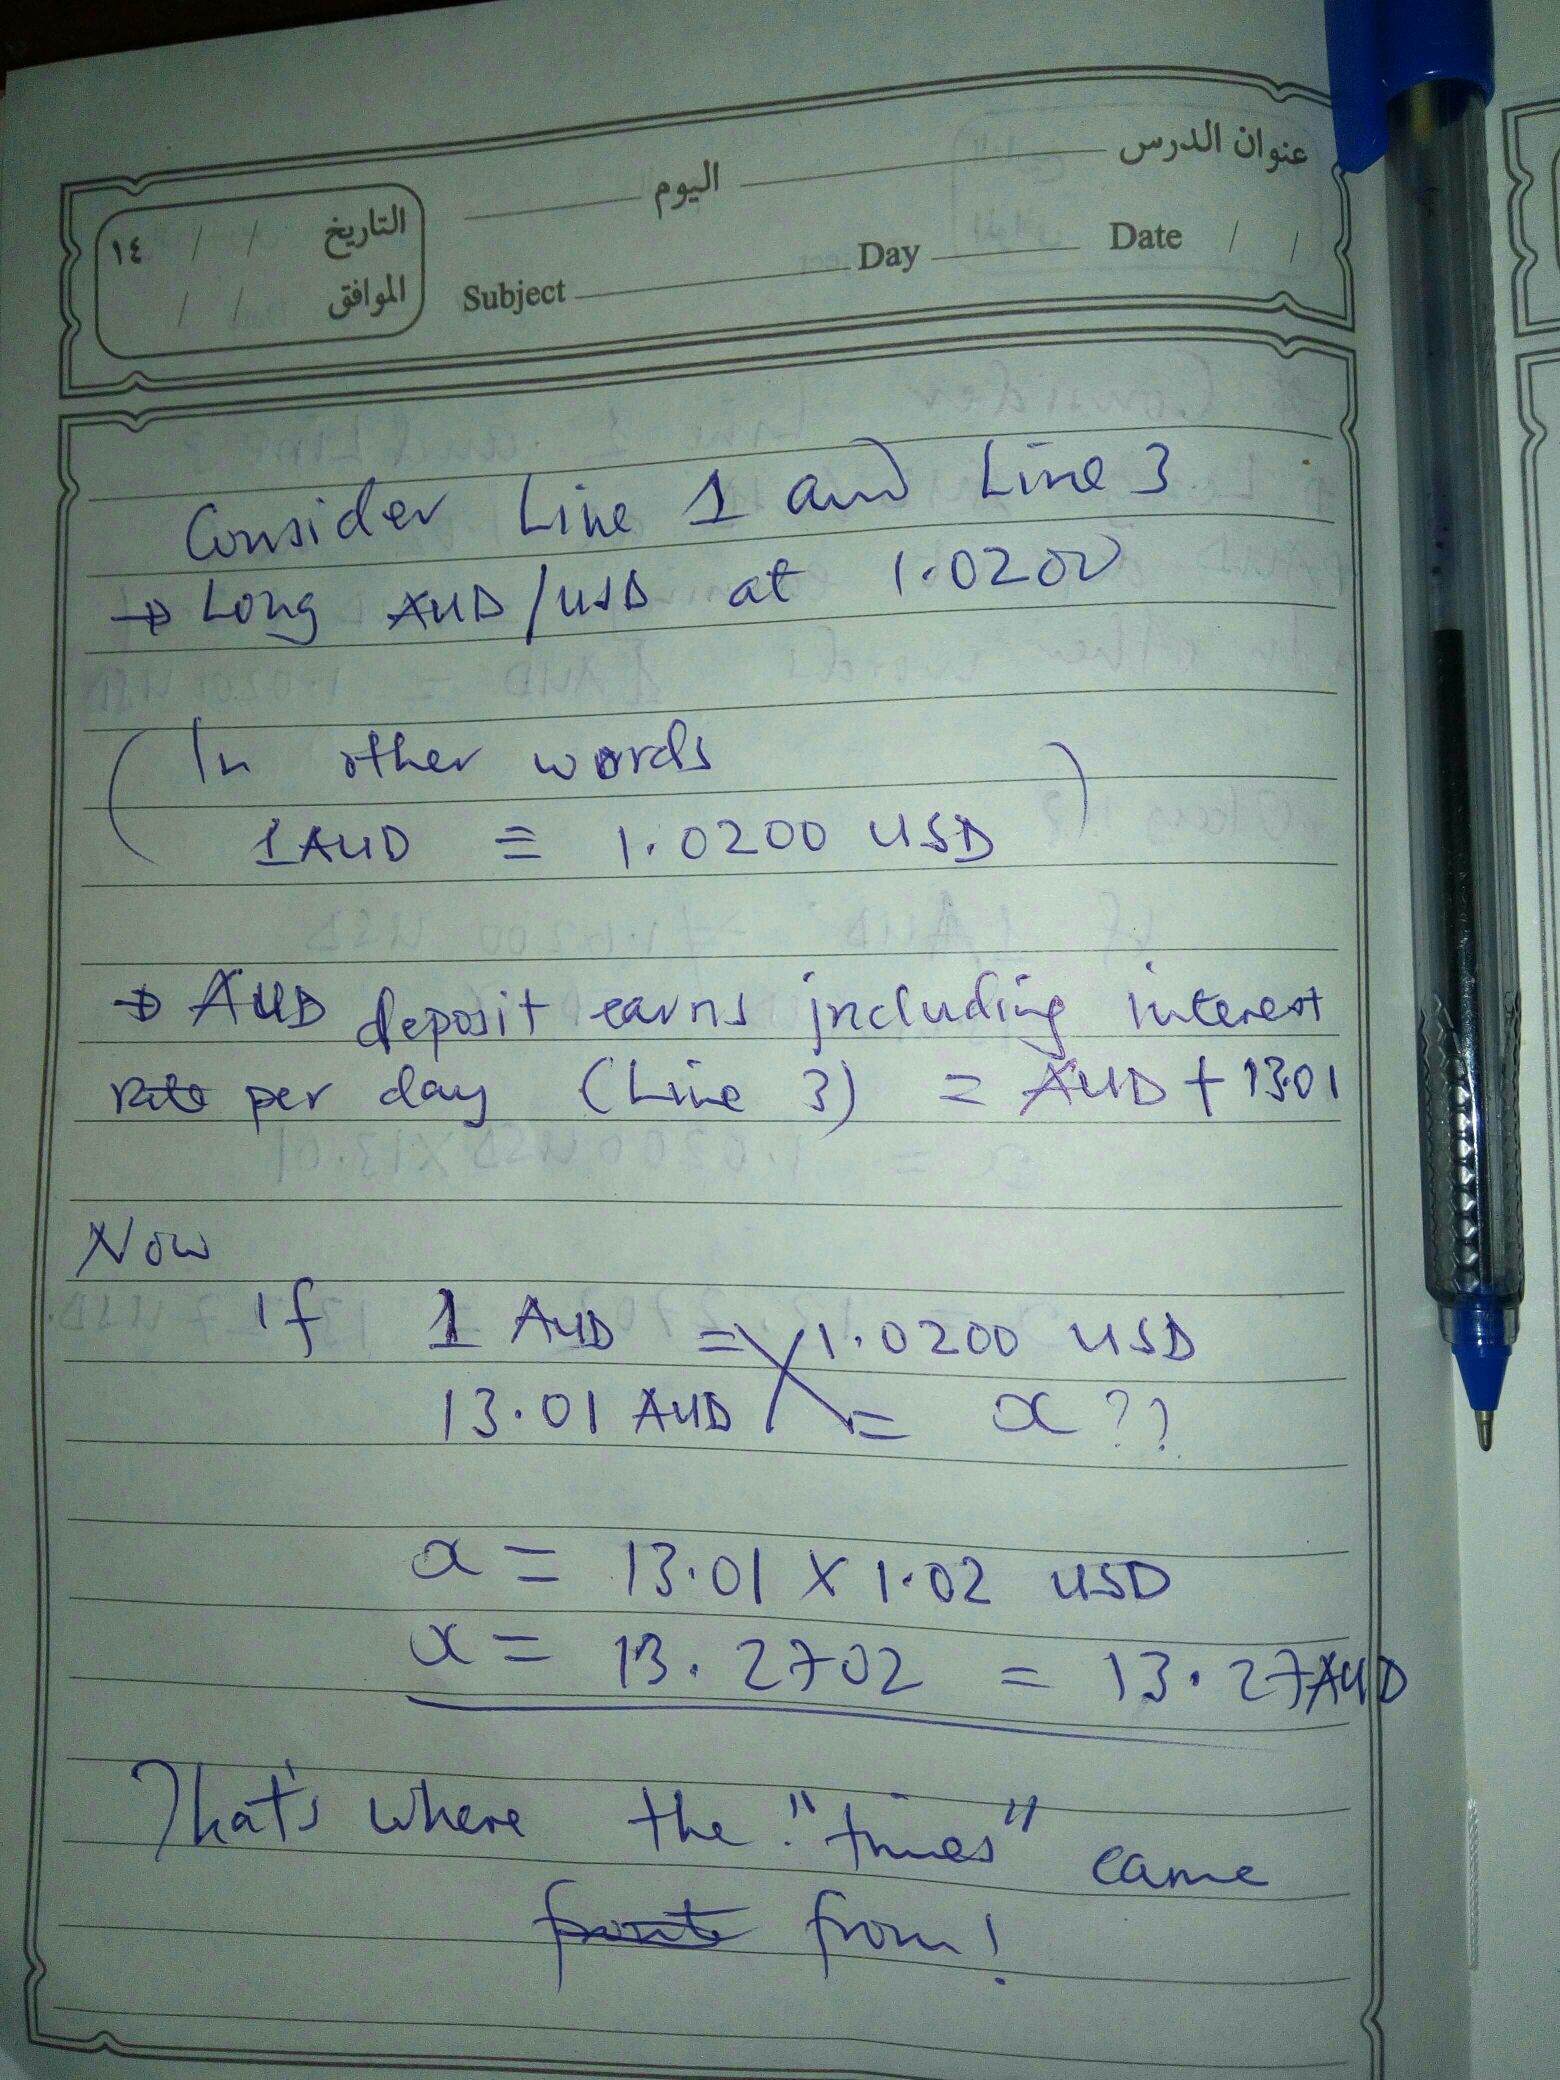 عنوان الدرس
اليوم
التاريخ / / ١٤
الموافق / /
Subject Day Date / /
Consider Line 1 and Line 3
→ Long AUD/USD at 1.0200
(In other words
1AUD = 1.0200 USD)
→ AUD deposit earns including interest
rate per day (Line 3) = AUD + 13.01
Now
if 1 AUD = 1.0200 USD
13.01 AUD = x??
x = 13.01 x 1.02 USD
x = 13.2702 = 13.27AUD
That's where the "times" came
from!